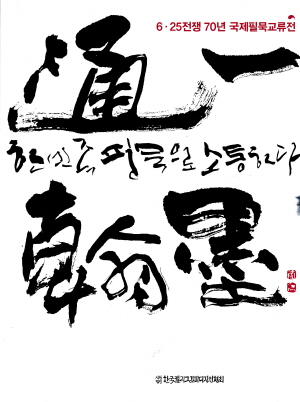 6·25전쟁 70년 국제필묵교류전
通一
한민족, 필묵으로 소통하다
翰墨
한국캘리그라피디자인협회